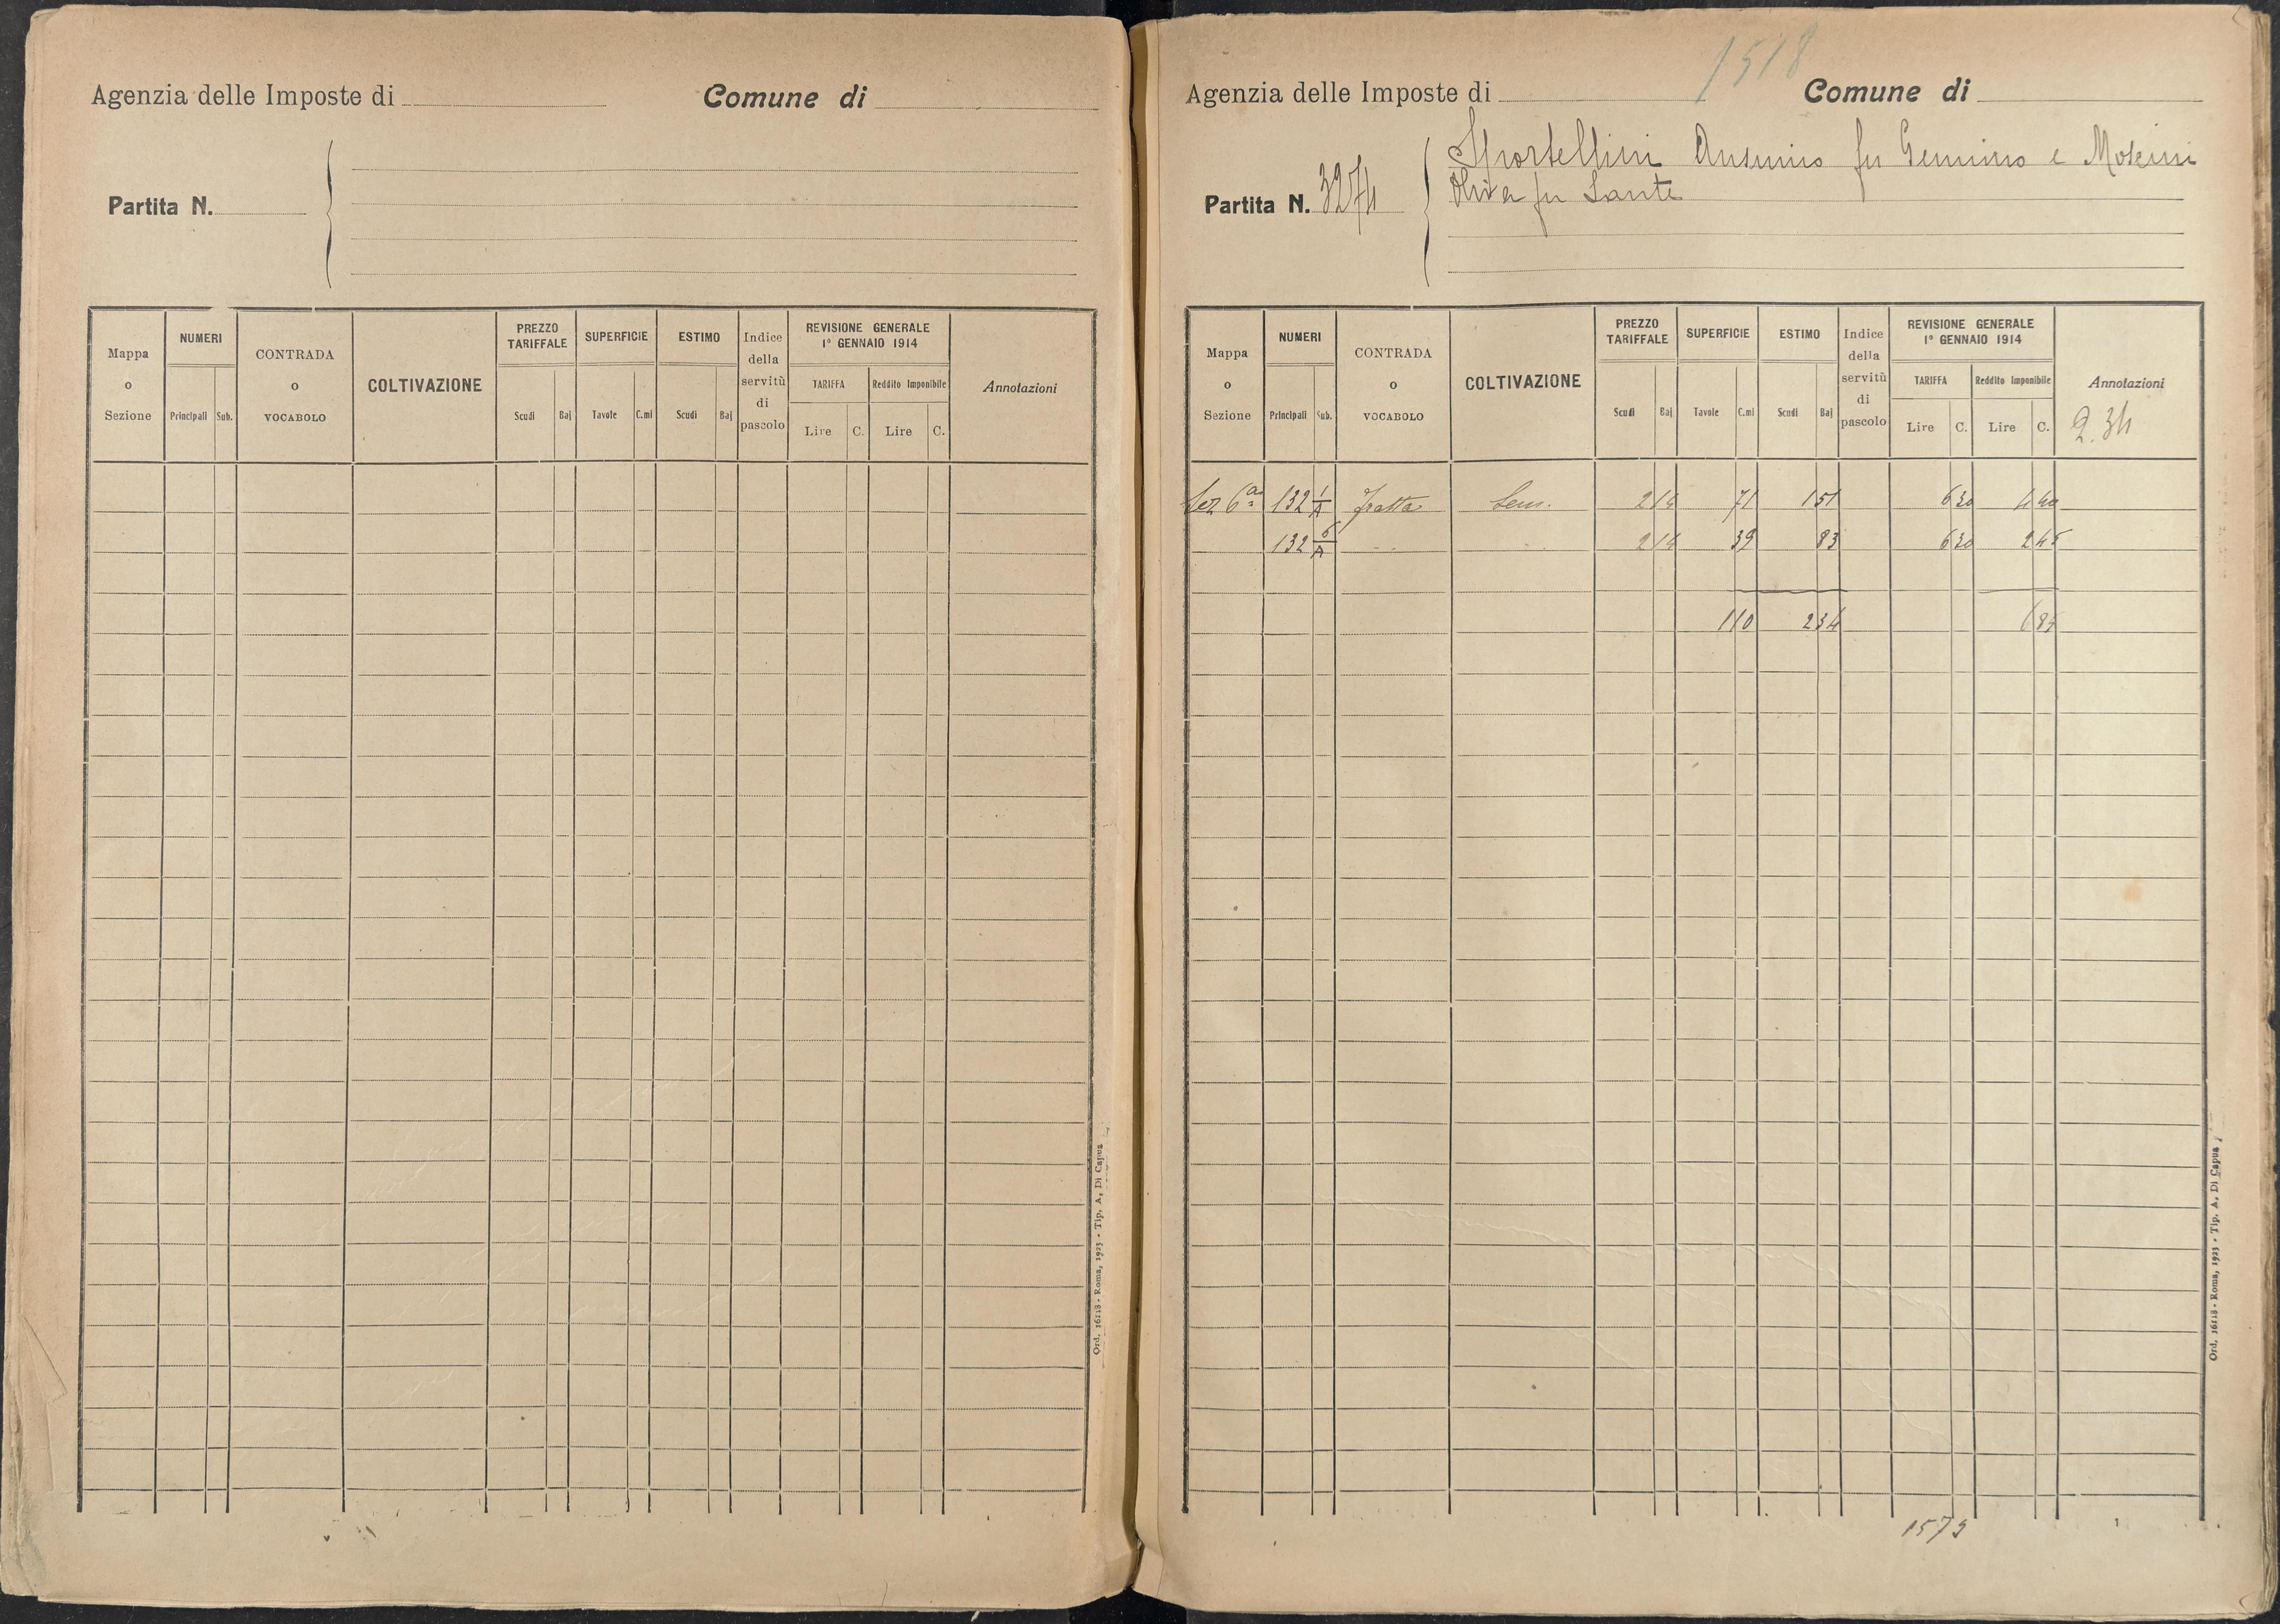 Agenzia delle Imposte di Comune di
Partita N.
Mappa o Sezione
NUMERI
Principali Sub.
CONTRADA o VOCABOLO
COLTIVAZIONE
PREZZO TARIFFALE
Scudi Baj
SUPERFICIE
Tavole C.mi
ESTIMO
Scudi Baj
Indice della servitù di pascolo
REVISIONE GENERALE
1° GENNAIO 1914
TARIFFA Reddito Imponibile
Lire C. Lire C.
Annotazioni
Ord. 16118 - Roma, 1923 - Tip. A. Di Capua
1518
Agenzia delle Imposte di Comune di
Partita N. 3274
Sportellini Ansuino fu Gemino e Moscini
Oliva fu Sante
Mappa o Sezione
NUMERI
Principali Sub.
CONTRADA o VOCABOLO
COLTIVAZIONE
PREZZO TARIFFALE
Scudi Baj
SUPERFICIE
Tavole C.mi
ESTIMO
Scudi Baj
Indice della servitù di pascolo
REVISIONE GENERALE
1° GENNAIO 1914
TARIFFA Reddito Imponibile
Lire C. Lire C.
Annotazioni
2.34
Sez 6a 132 1/A Fratta Sem. 2 14 71 1 51 6 20 4 40
132 6/A 2 14 39 83 6 20 2 45
1 10 2 34 6 85
Ord. 16118 - Roma, 1923 - Tip. A. Di Capua
1573